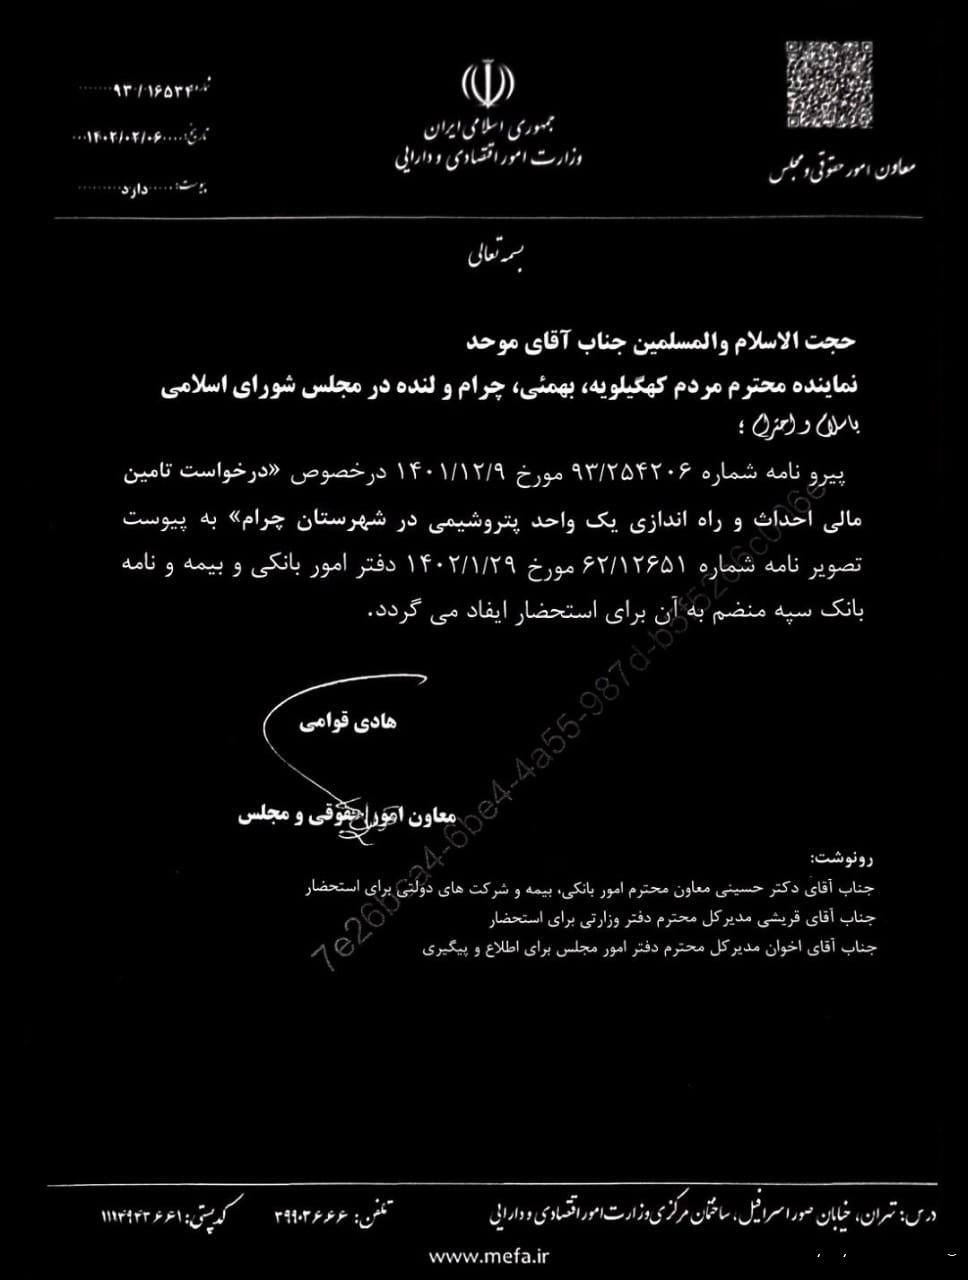 شماره: ۹۳/۱۶۵۳۴
تاریخ: ۱۴۰۲/۰۲/۰۶
پیوست: دارد
جمهوری اسلامی ایران
وزارت امور اقتصادی و دارایی
معاون امور حقوقی و مجلس
بسمه تعالی
حجت الاسلام والمسلمین جناب آقای موحد
نماینده محترم مردم کهگیلویه، بهمئی، چرام و لنده در مجلس شورای اسلامی
باسلام و احترام ؛
پیرو نامه شماره ۹۳/۲۵۴۲۰۶ مورخ ۱۴۰۱/۱۲/۹ درخصوص «درخواست تامین
مالی احداث و راه اندازی یک واحد پتروشیمی در شهرستان چرام» به پیوست
تصویر نامه شماره ۶۲/۱۲۶۵۱ مورخ ۱۴۰۲/۱/۲۹ دفتر امور بانکی و بیمه و نامه
بانک سپه منضم به آن برای استحضار ایفاد می گردد.
هادی قوامی
معاون امور حقوقی و مجلس
رونوشت:
جناب آقای دکتر حسینی معاون محترم امور بانکی، بیمه و شرکت های دولتی برای استحضار
جناب آقای قریشی مدیرکل محترم دفتر وزارتی برای استحضار
جناب آقای اخوان مدیرکل محترم دفتر امور مجلس برای اطلاع و پیگیری
آدرس: تهران، خیابان صور اسرافیل، ساختمان مرکزی وزارت امور اقتصادی و دارایی تلفن: ۳۹۹۰۳۶۶۶ کدپستی: ۱۱۱۴۹۴۳۶۶۱
www.mefa.ir